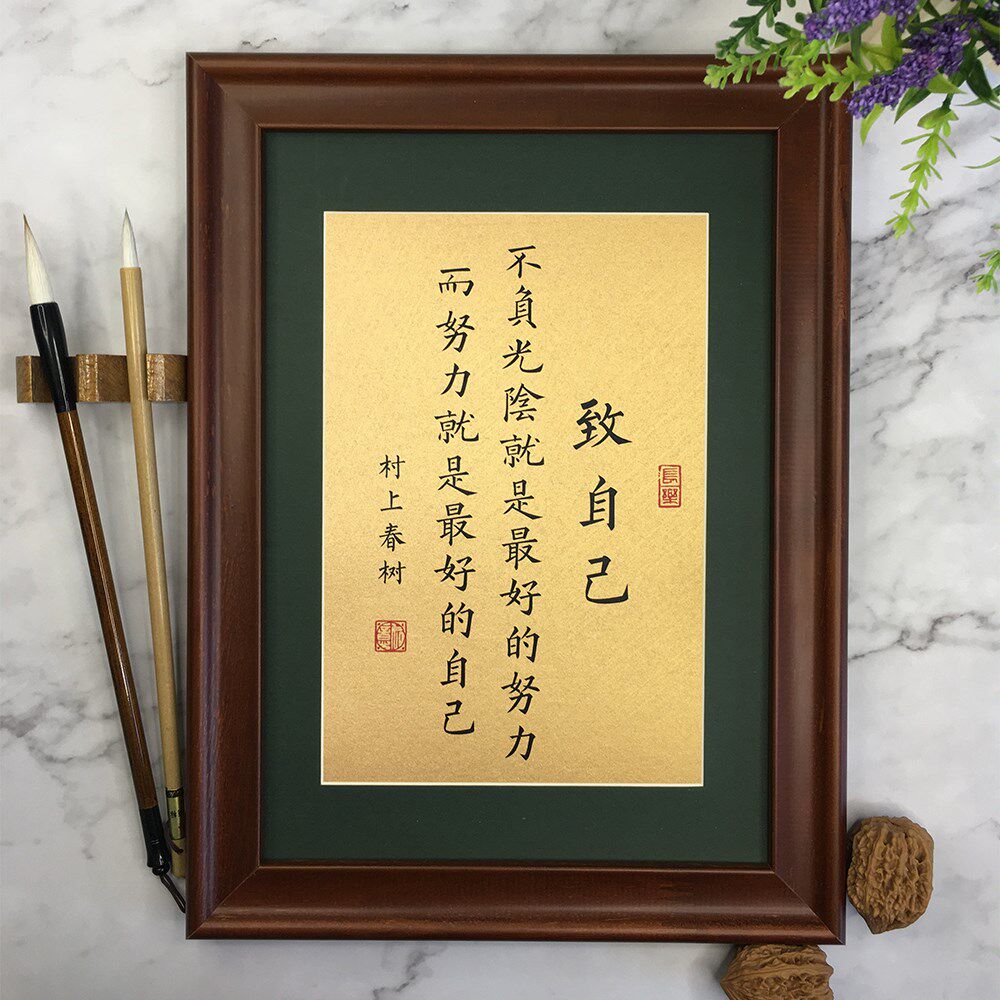 長樂
致自己
不負光陰就是最好的努力
而努力就是最好的自己
村上春树